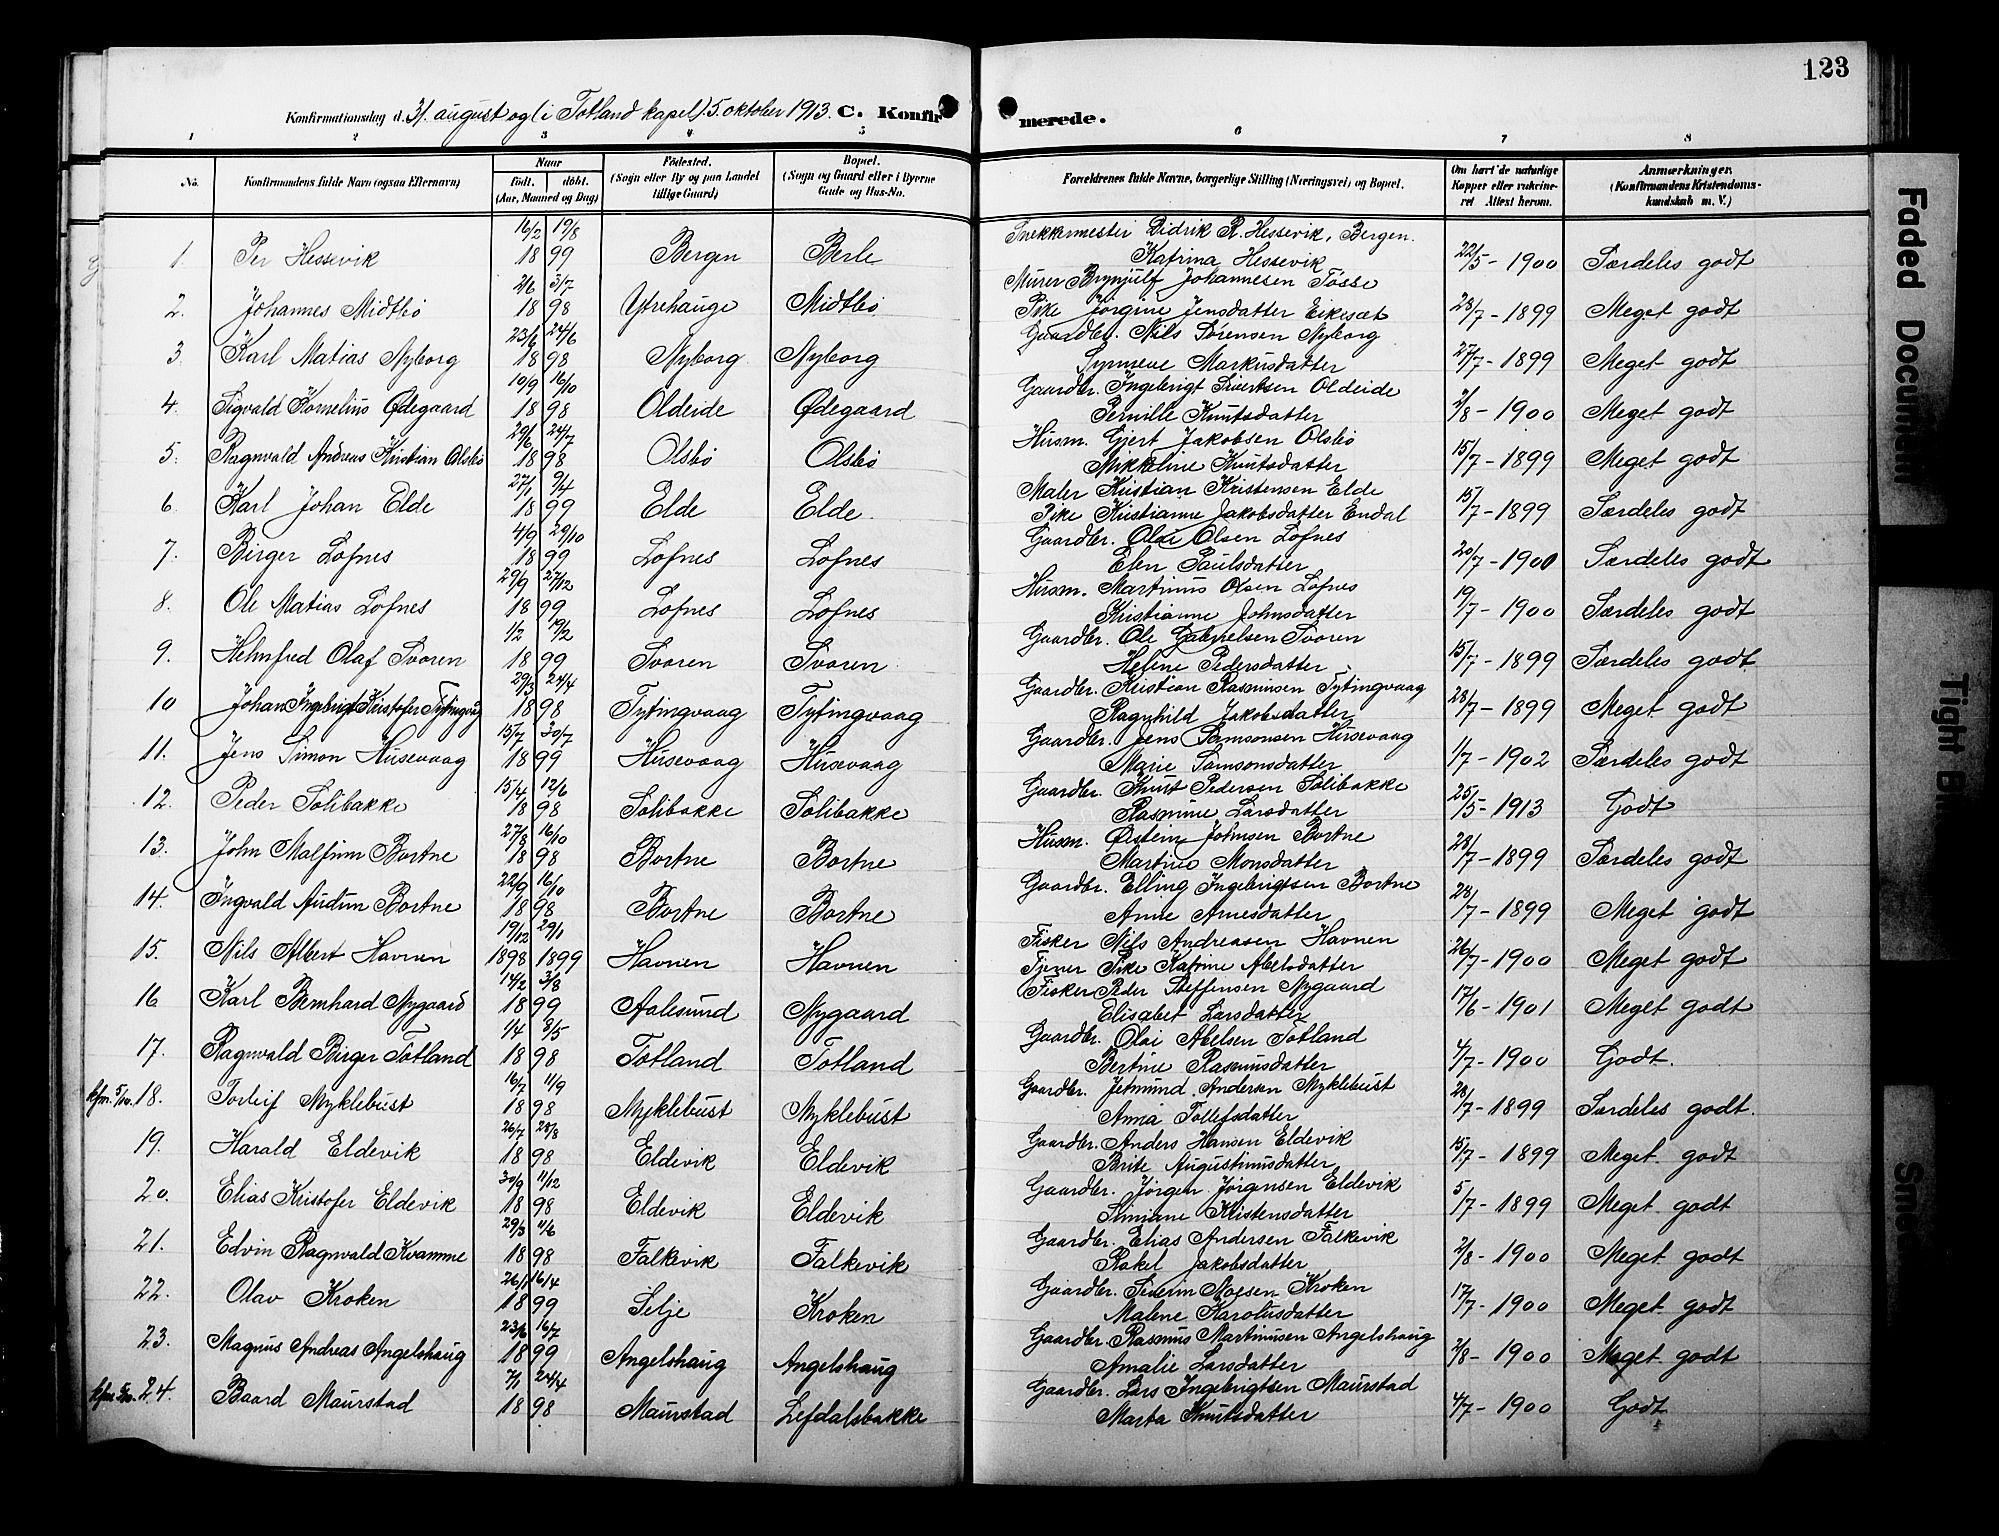 123
Konfirmationsdag d. 31. august og (i Totland kapel) 5. oktober 1913. C. Konfir merede.
1 2 3 4 5 6 7 8
No. Konfirmandens fulde Navn (ogsaa Efternavn) Naar födt. döbt. (Aar, Maaned og Dag) Födested. (Sogn eller By og paa Landet tillige Gaard) Bopæl. (Sogn og Gaard eller i Byerne Gade og Hus-No. Forældrenes fulde Navne, borgerlige Stilling (Næringsvei) og Bopæl. Om havt de naturlige Kopper eller vaksineret Attest herom. Anmærkninger. (Konfirmandens Kristendomskundskab m. V.)
16/2 19/8 Snekkermester Didrik R. Hessevik, Bergen.
1. Per Hessevik 18 99 Bergen Berle Katrina Hessevik 22/5 - 1900 Særdeles godt
2/6 3/7 Murer Brynjulf Johannesen Tosse
2. Johannes Midtbö 18 98 Ytrehauge Midtbö Pike Jörgine Jensdatter Eikesæt 28/7 - 1899 Meget godt
23/6 24/6 Gaardbr. Nils Sörensen Nyborg
3. Karl Matias Nyborg 18 98 Nyborg Nyborg Synneve Markusdatter 27/7 - 1899 Meget godt
10/9 16/10 Gaardbr. Ingebrigt Sivertsen Oldeide
4. Sigvald Kornelius Ødegaard 18 98 Oldeide Ødegaard Pernille Knutsdatter 2/8 - 1900 Meget godt
29/6 24/7 Husm. Gjert Jakobsen Olsbö
5. Ragnvald Andreas Kristian Olsbö 18 98 Olsbö Olsbö Mikkeline Knutsdatter 15/7 - 1899 Meget godt
27/1 9/4 Maler Kristian Kristensen Elde
6. Karl Johan Elde 18 99 Elde Elde Pike Kristianne Jakobsdatter Endal 15/7 - 1899 Særdeles godt
4/9 29/10 Gaardbr. Olai Olsen Löfnes
7. Birger Löfnes 18 99 Löfnes Löfnes Elen Paulsdatter 20/7 - 1900 Særdeles godt
29/9 27/12 Husm. Martinus Olsen Löfnes
8. Ole Matias Löfnes 18 99 Löfnes Löfnes Kristianne Johnsdatter 19/7 - 1900 Særdeles godt
1/2 19/2 Gaardbr. Ole Gabrielsen Svoren
9. Helmfred Olaf Svoren 18 99 Svoren Svoren Helene Pedersdatter 15/7 - 1899 Særdeles godt
29/3 24/4 Gaardbr. Kristian Rasmusen Tytingvaag
10 Johan Ingebrigt Kristofer Tytingvåg 18 98 Tytingvaag Tytingvaag Ragnhild Jakobsdatter 28/7 - 1899 Meget godt
15/7 30/7 Gaardbr. Jens Samsonsen Husevaag
11. Jens Simon Husevaag 18 99 Husevaag Husevaag Marie Samsonsdatter 1/7 - 1902 Særdeles godt
15/4 12/6 Gaardbr. Knut Pedersen Solibakke
12. Peder Solibakke 18 98 Solibakke Solibakke Rasmine Larsdatter 25/5 - 1913 Godt
27/8 16/10 Husm. Østein Johnsen Bortne
13. John Malfinn Bortne 18 98 Bortne Bortne Martine Monsdatter 28/7 - 1899 Særdeles godt
22/9 16/10 Gaardbr. Elling Ingebrigtsen Bortne
14. Ingvald Audun Bortne 18 98 Bortne Bortne Anne Arnesdatter 28/7 - 1899 Meget godt
19/12 29/1 Fisker Nils Andreasen Havnen
15. Nils Albert Havnen 1898 1899 Havnen Havnen Tjener Pike Katrine Abelsdatter 26/7 - 1900 Meget godt
14/2 3/8 Fisker Peder Steffensen Nygaard
16 Karl Bernhard Nygaard 18 99 Aalesund Nygaard Elisabet Larsdatter 17/6 - 1901 Meget godt
1/4 8/5 Gaardbr. Olai Abelsen Totland
17. Ragnvald Birger Totland 18 98 Totland Totland Bertine Rasmusdatter 4/7 - 1900 Godt.
16/7 11/9 Gaardbr. Jetmund Andersen Myklebust
kfm. 5/10. 18. Torleif Myklebust 18 98 Myklebust Myklebust Anna Tollefsdatter 28/7 - 1899 Særdeles godt.
26/7 28/8 Gaardbr. Anders Hansen Eldevik
19. Harald Eldevik 18 98 Eldevik Eldevik Brite Augustinusdatter 15/7 - 1899 Meget godt
30/9 11/12 Gaardbr. Jörgen Jörgensen Eldevik
20. Elias Kristofer Eldevik 18 98 Eldevik Eldevik Kristensdatter 5/7 - 1899 Meget godt
29/3 11/6 Gaardbr. Elias Andersen Falkevik
21. Edvin Ragnvald Kvamme 18 98 Falkevik Falkevik Rakel Jakobsdatter 2/8 - 1900 Meget godt
26/1 16/4 Gaardbr. Severin Moesen Kroken
22. Olav Kroken 18 99 Selje Kroken Malene Karolusdatter 17/7 - 1900 Meget godt
23/6 16/7 Gaardbr. Rasmus Martinusen Angelshaug
23. Magnus Andreas Angelshaug 18 99 Angelshaug Angelshaug Amalie Larsdatter 2/8 - 1900 Meget godt
7/1 24/4 Gaardbr. Lars Ingebrigtsen Maurstad
kfm. 5/10. 24. Baard Maurstad 18 98 Maurstad Lefdalsbakke Marta Knutsdatter 4/7 - 1900 Godt
Faded Document
Tight Bi